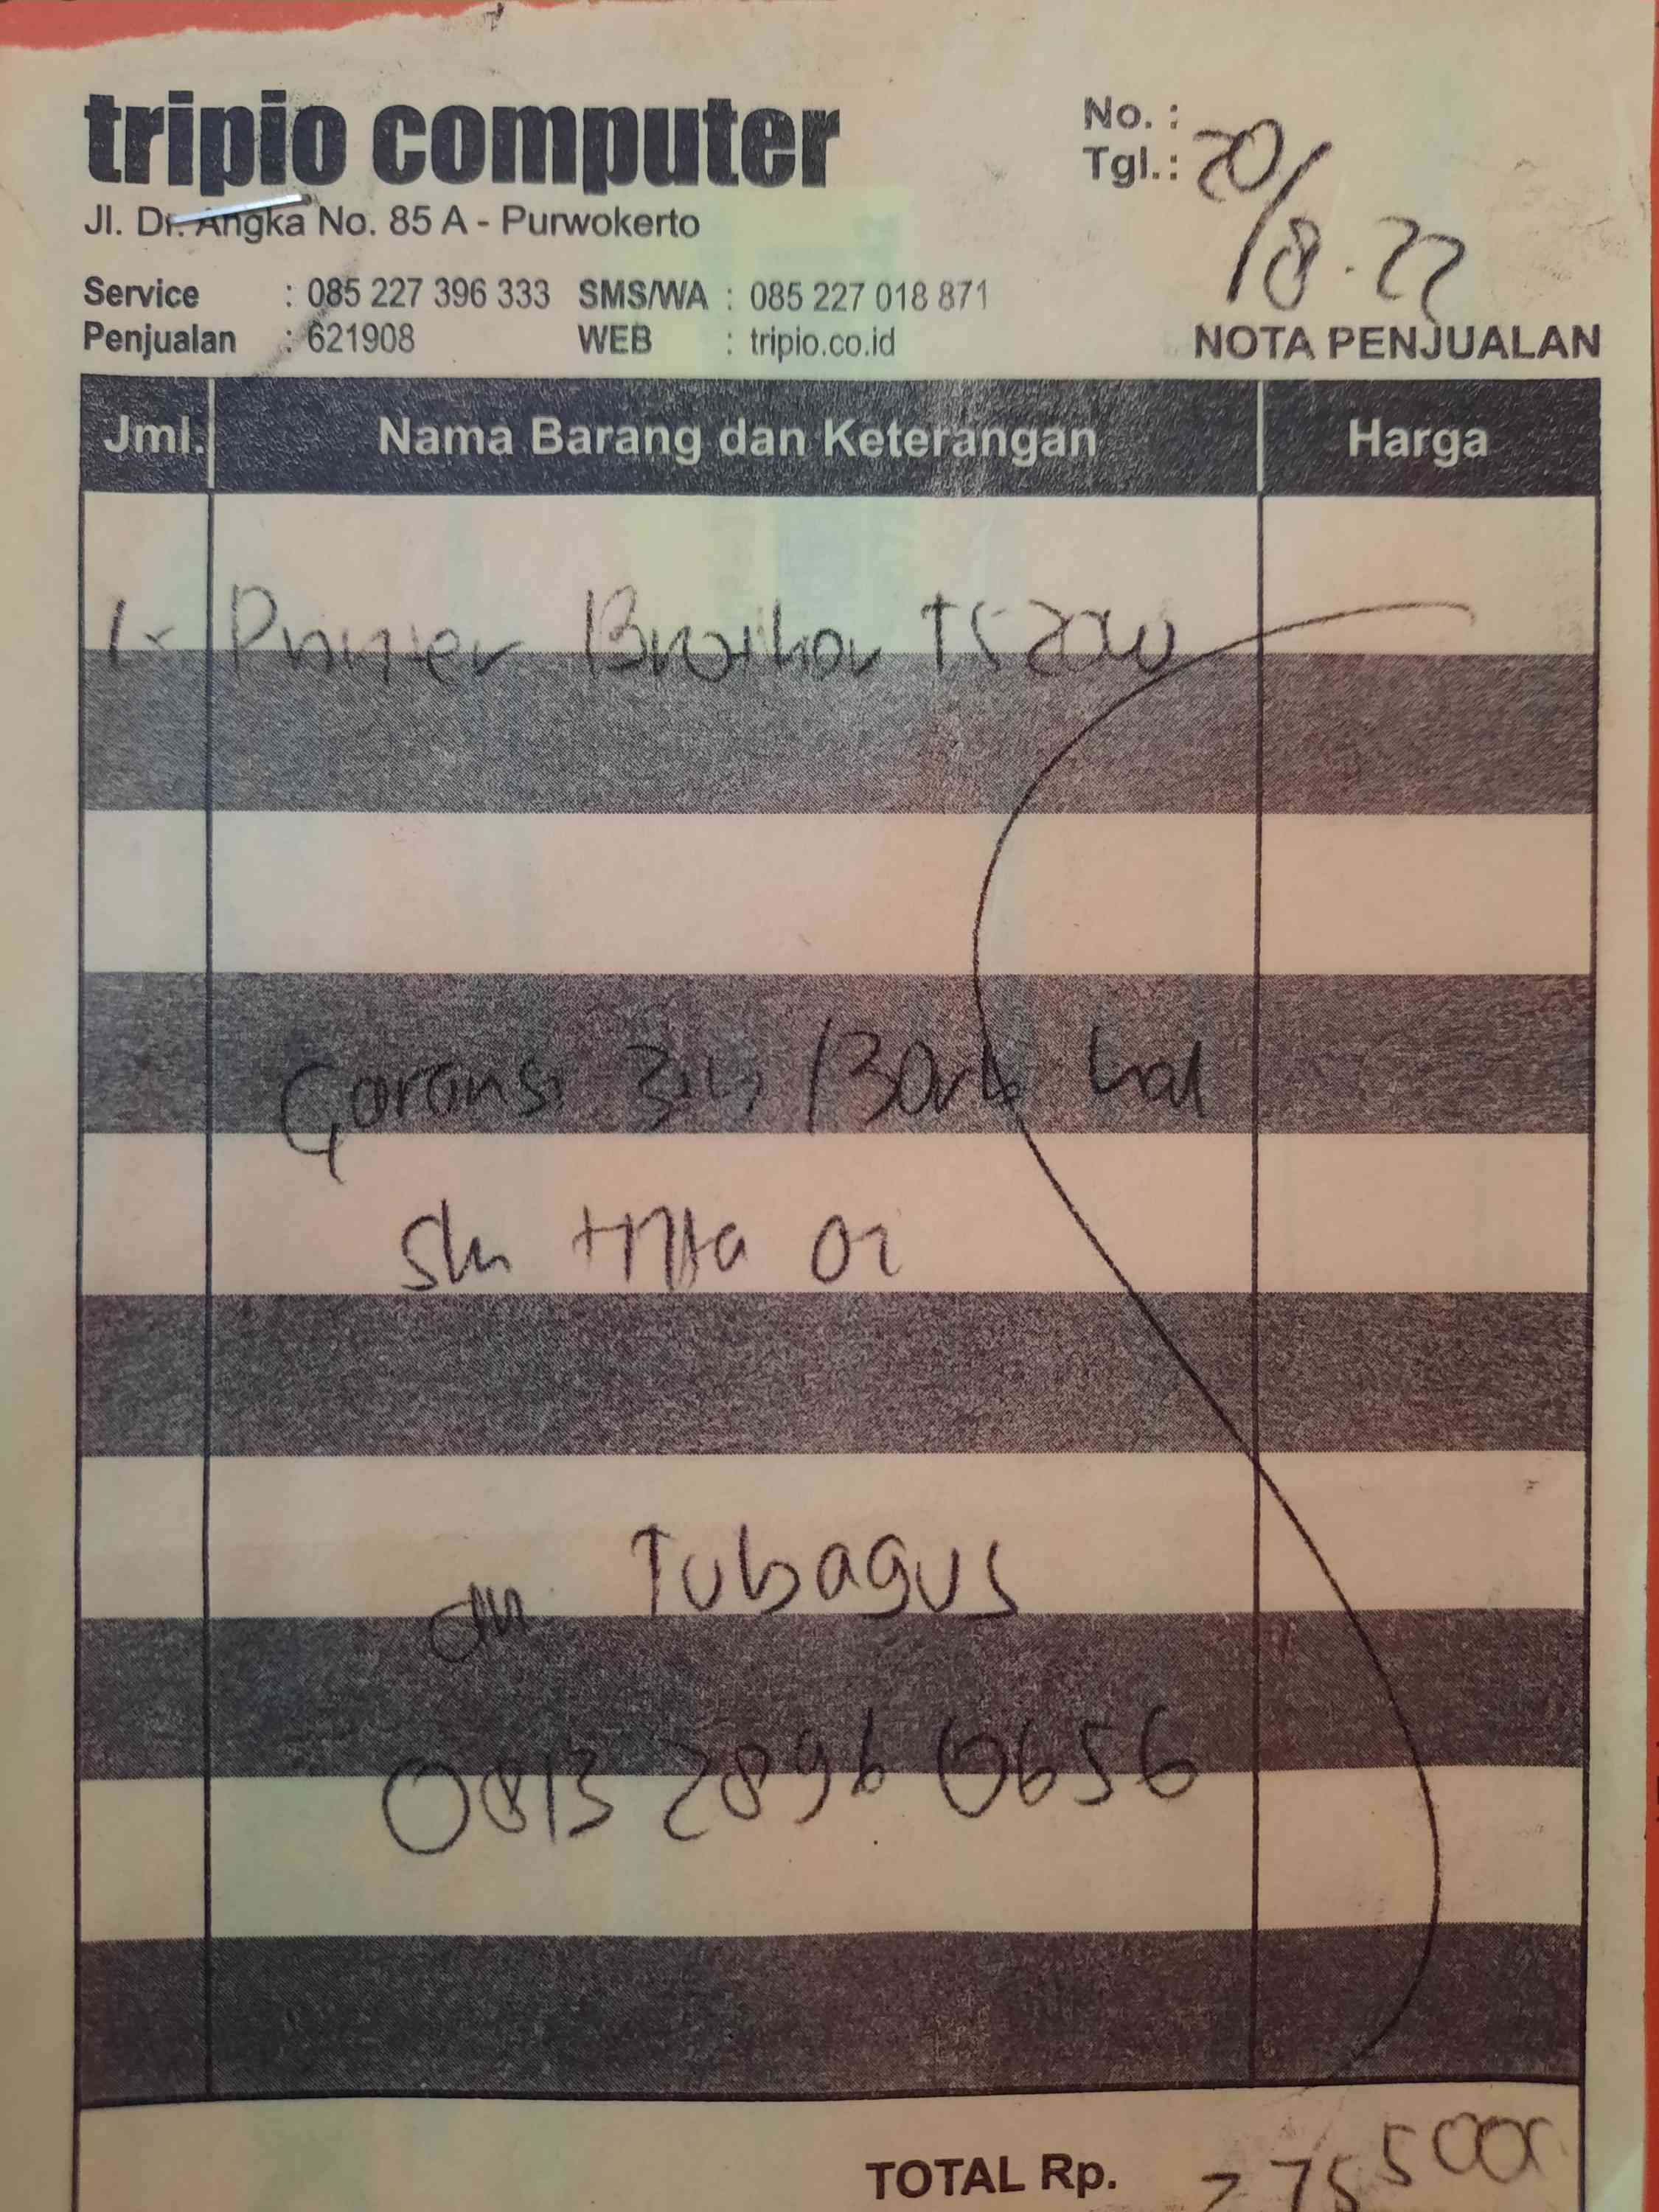 tripio computer
Jl. Dr. Angka No. 85 A - Purwokerto
No. :
Tgl. : 20/8.22
Service : 085 227 396 333 SMS/WA : 085 227 018 871
Penjualan : 621908 WEB : tripio.co.id
NOTA PENJUALAN
Jml. Nama Barang dan Keterangan Harga
1x Printer Brother
Garansi 3th /30rb hal
Tubagus
0813 2896 0656
TOTAL Rp.